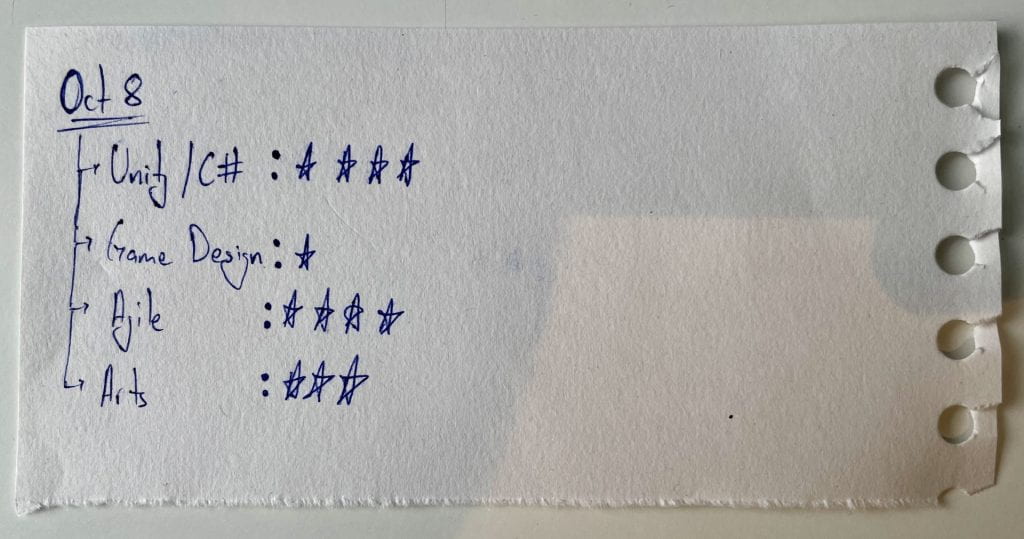 Oct 8
Unity/C# : ☆ ☆ ☆ ☆
Game Design : ☆
Agile : ☆ ☆ ☆ ☆
Arts : ☆ ☆ ☆